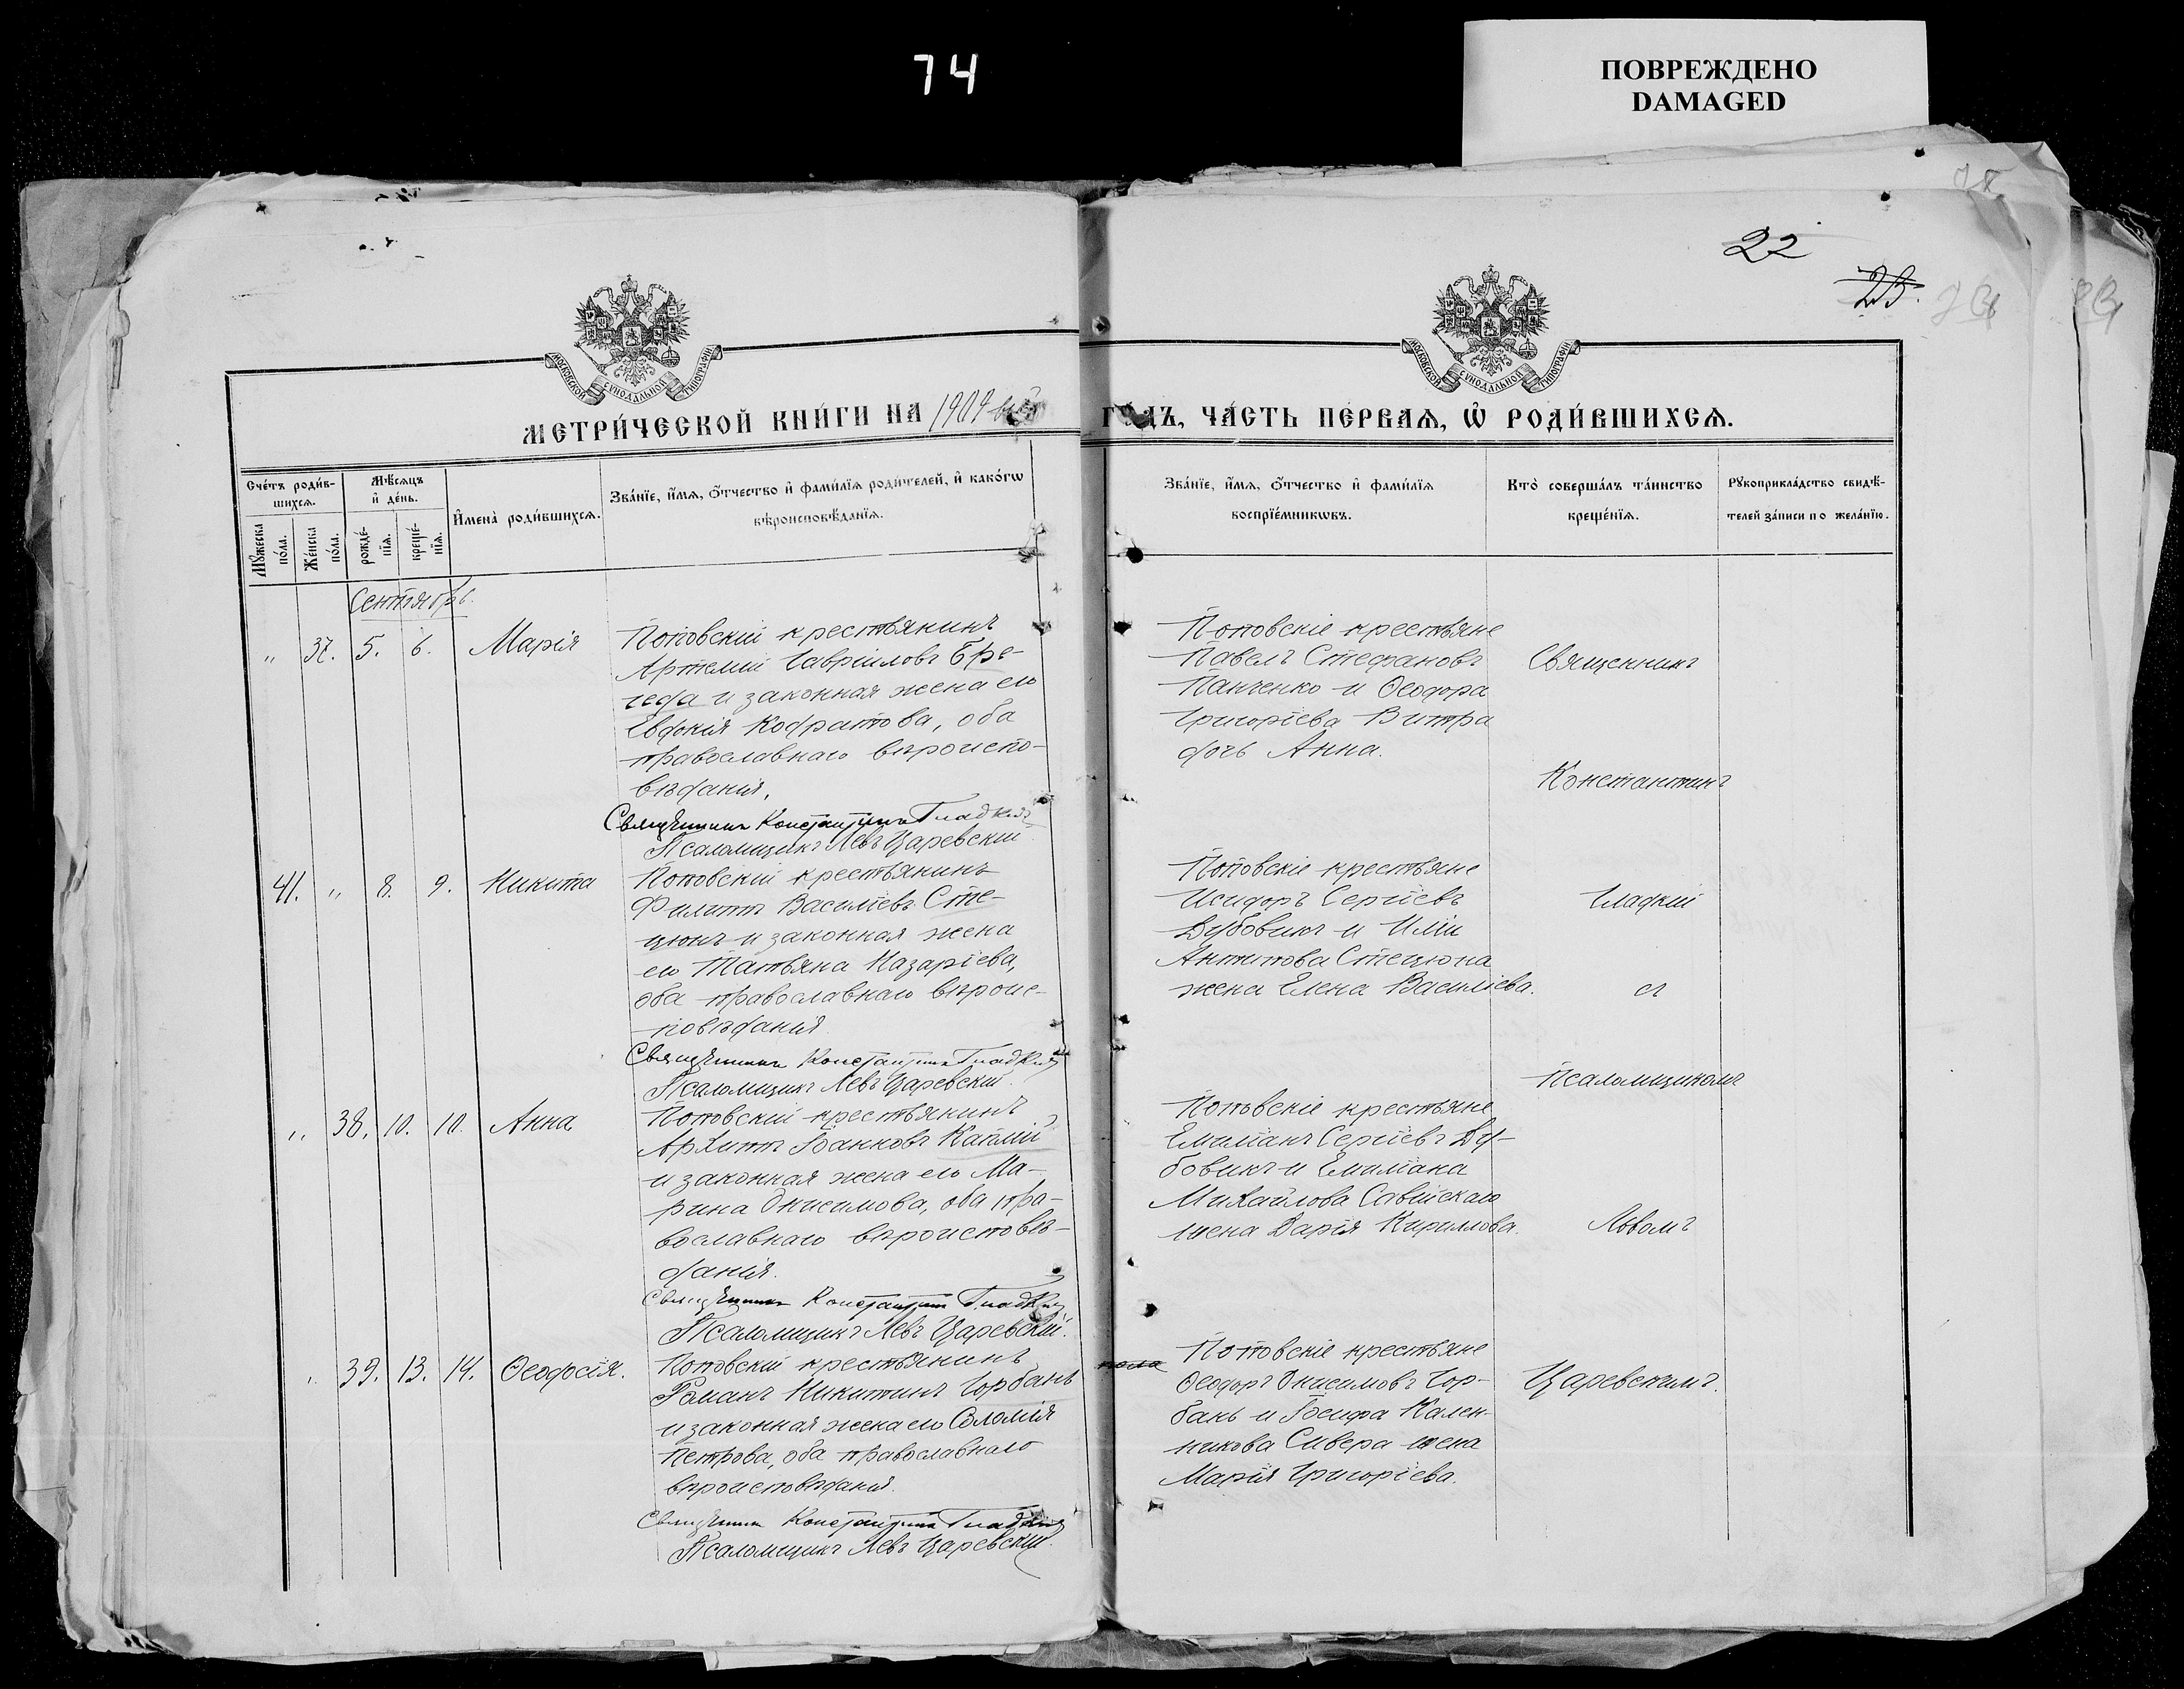 74
ПОВРЕЖДЕНО
DAMAGED
22
23.
МОСКОВСКОЙ СѴНОДАЛЬНОЙ ТИПОГРАФІИ
МОСКОВСКОЙ СѴНОДАЛЬНОЙ ТИПОГРАФІИ
МЕТРИ́ЧЕСКОЙ КНИ́ГИ НА 1904 ГО́ДЪ, ЧА́СТЬ ПЕ́РВАѦ, Ѡ҆ РОДИ́ВШИХСѦ.
Сче́тъ роди́в-
шихсѧ.
Мꙋ́жеска по́ла.
Же́нска по́ла.
Мѣ́сѧцъ и҆ де́нь.
рожде́-нїѧ.
креще́-нїѧ.
И҆мена̀ роди́вшихсѧ.
Зва́нїе, и҆́мѧ, ѻ҆́тчество и҆ фами́лїѧ роди́телей, и҆ како́гѡ
вѣроисповѣ́данїѧ.
Зва́нїе, и҆́мѧ, ѻ҆́тчество и҆ фами́лїѧ
воспрїе́мникѡвъ.
Кто̀ соверша́лъ та́инство
креще́нїѧ.
Рꙋкоприкла́дство свидѣ́-
телей за́писи по жела́нїю.
Сентябрь.
" 37. 5. 6. Марія
Поповскій крестьянинъ
Артемій Гавріиловъ Бре-
геда и законная жена его
Евдокія Кодратова, оба
православнаго вѣроиспо-
вѣданія.
Священникъ Константинъ Гладкій
Псаломщикъ Левъ Царевскій
Поповскіе крестьяне
Павелъ Стефановъ
Панченко и Ѳеодора
Григоріева Витра
дочь Анна.
Священникъ
Константинъ
41. " 8. 9. Никита
Поповскій крестьянинъ
Филиппъ Василіевъ Сте-
цюнъ и законная жена
его Татьяна Назаріева,
оба православнаго вѣроис-
повѣданія
Священникъ Константинъ Гладкій
Псаломщикъ Левъ Царевскій.
Поповскіе крестьяне
Исидоръ Сергіевъ
Дубовикъ и Иліи
Антипова Стецюна
жена Елена Василіева.
Гладкій
съ
Псаломщикомъ
" 38. 10. 10. Анна
Поповскій крестьянинъ
Архиппъ Іоанновъ Каплій
и законная жена его Ма-
рина Онисимова, оба пра-
вославнаго вѣроисповѣ-
данія.
Священникъ Константинъ Гладкій
Псаломщикъ Левъ Царевскій.
Поповскіе крестьяне
Емиліанъ Сергіевъ Ду-
бовикъ и Емиліана
Михайлова Савійскаго
жена Дарія Кириллова.
Львомъ
" 39. 13. 14. Ѳеодосія.
Поповскій крестьянинъ
Романъ Никитинъ Горбань
и законная жена его Соломія
Петрова, оба православнаго
вѣроисповѣданія.
Священникъ Константинъ Гладкій
Псаломщикъ Левъ Царевскій.
Поповскіе крестьяне
Ѳеодоръ Онисимовъ Гор-
бань и Іосифа Кален-
никова Сивера жена
Марія Григоріева.
Царевскимъ.